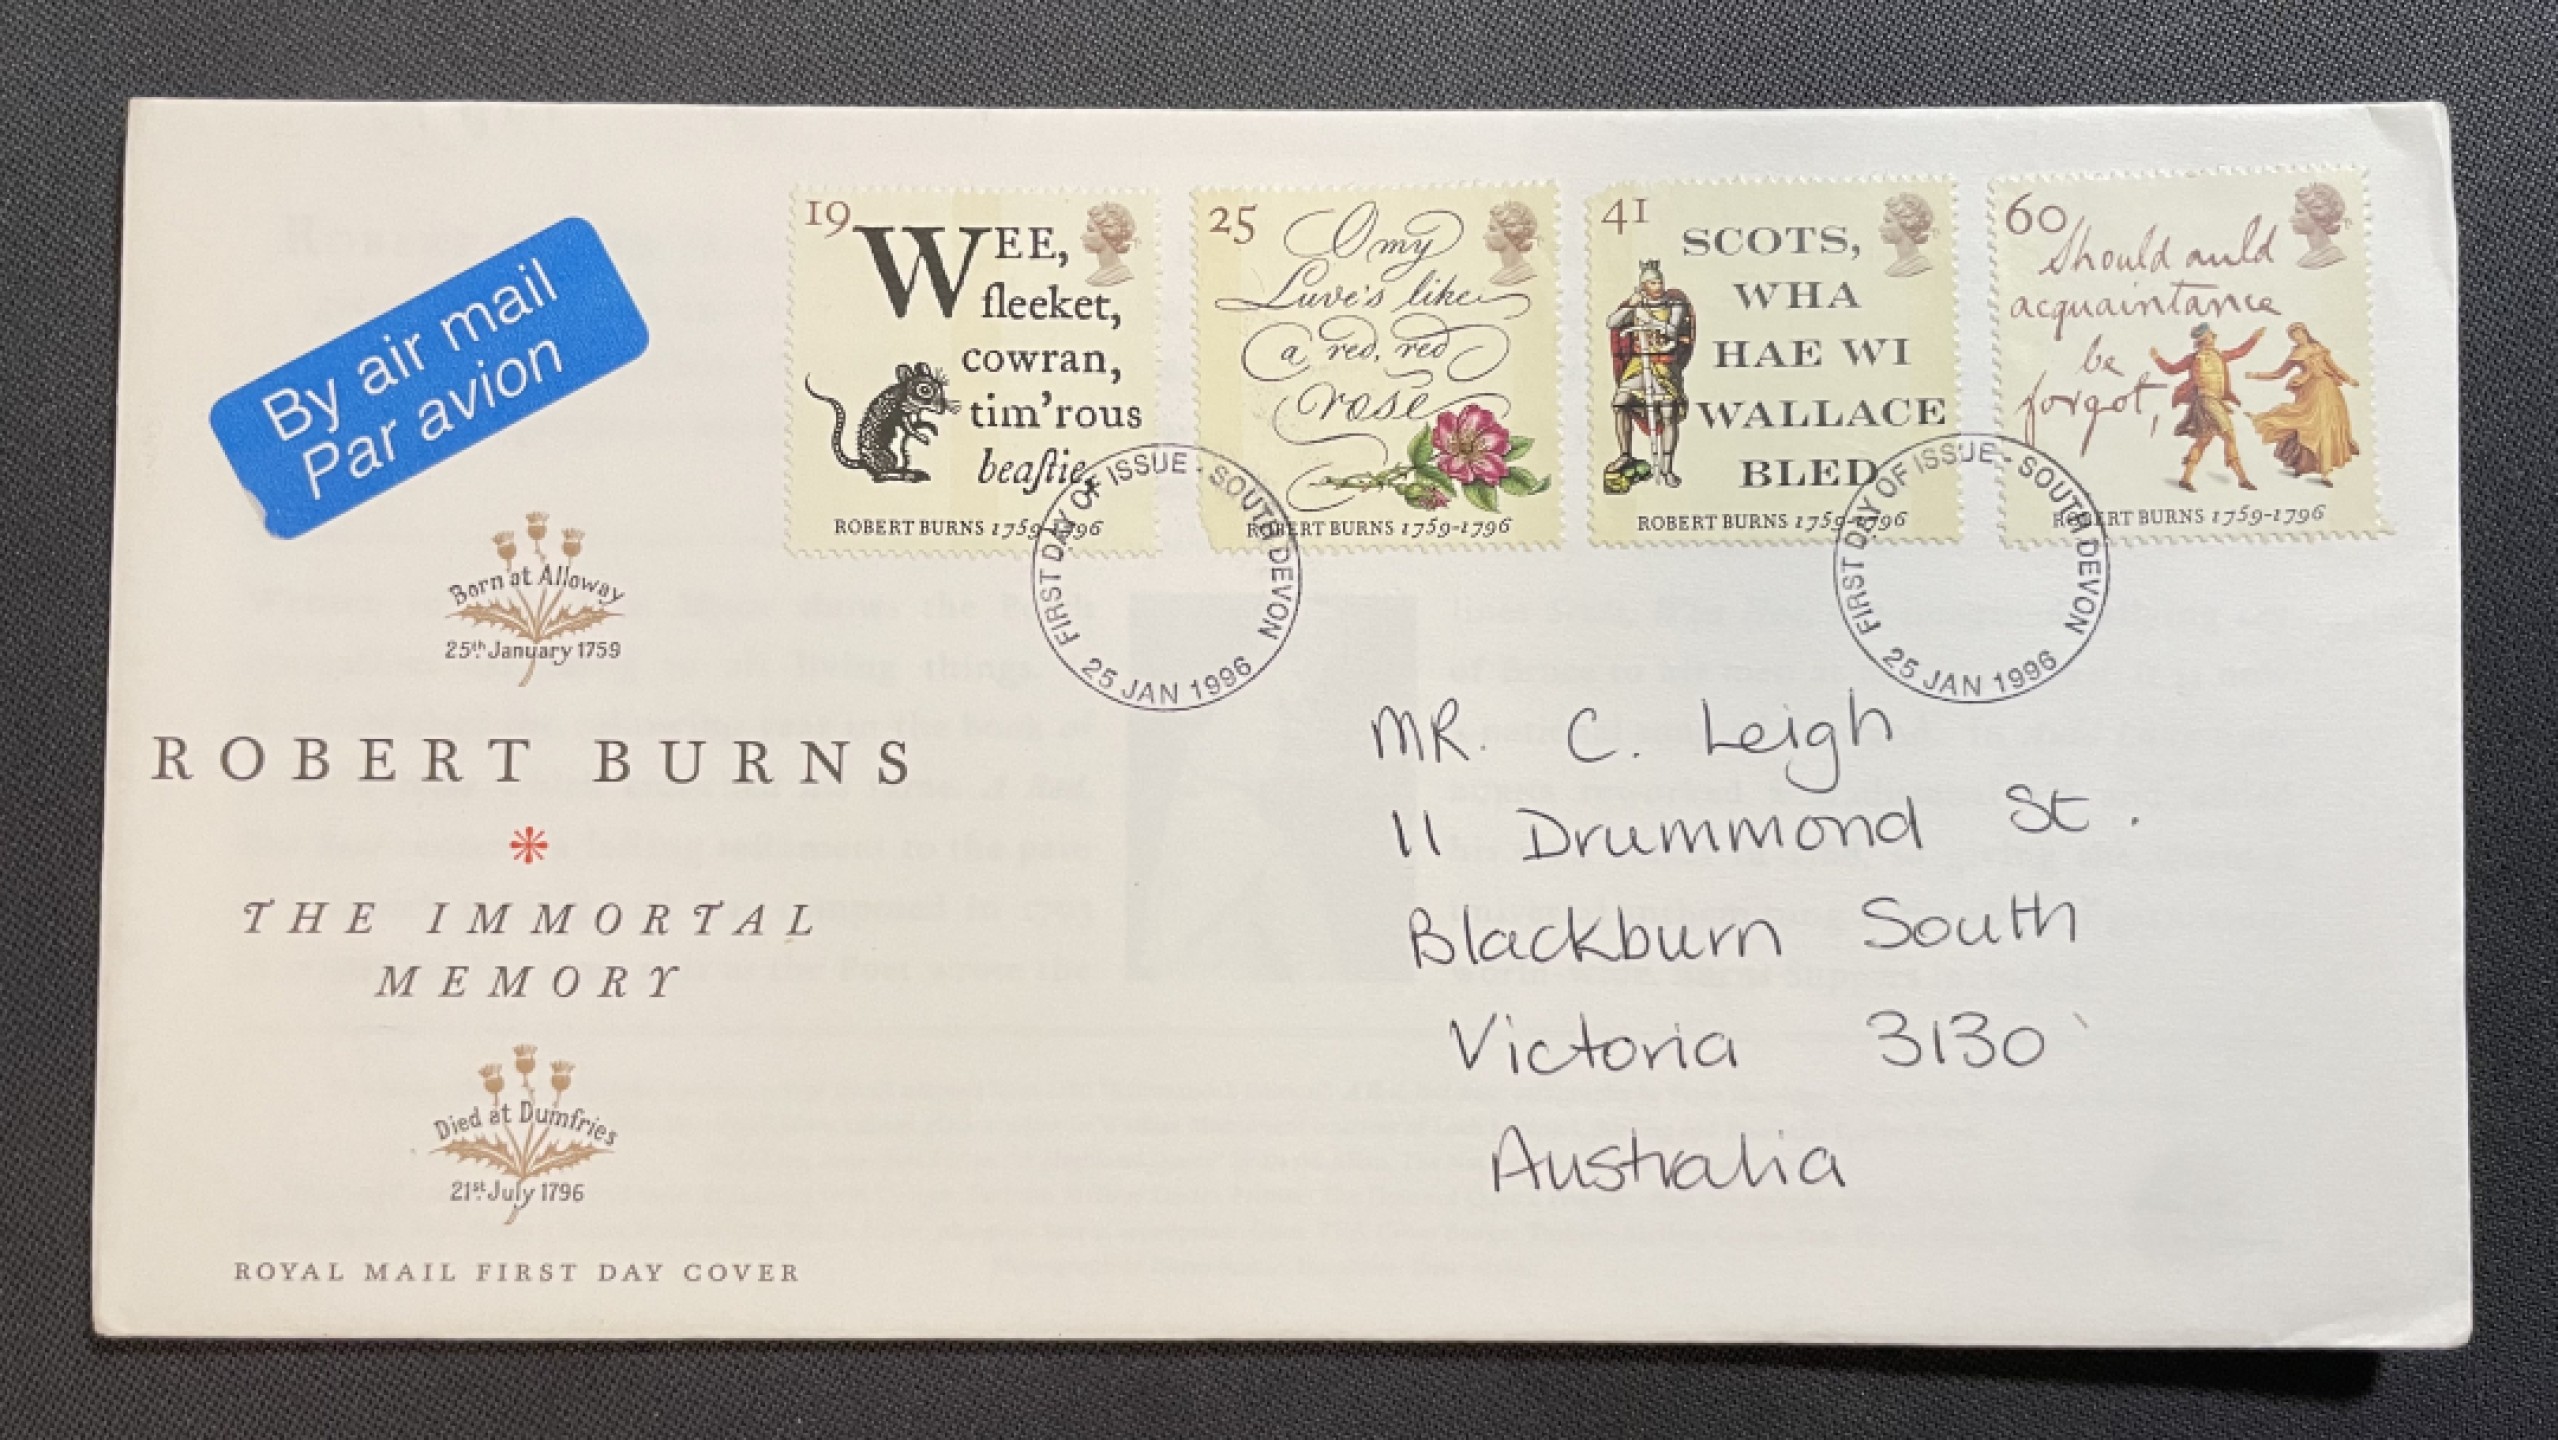 By air mail
Par avion
19
WEE,
fleeket,
cowran,
tim'rous
beaſtie,
ROBERT BURNS 1759-1796
25
O my
Luve's like
a red, red
rose
ROBERT BURNS 1759-1796
41
SCOTS,
WHA
HAE WI
WALLACE
BLED
ROBERT BURNS 1759-1796
60
Should auld
acquaintance
be
forgot,
ROBERT BURNS 1759-1796
FIRST DAY OF ISSUE - SOUTH DEVON
25 JAN 1996
FIRST DAY OF ISSUE - SOUTH DEVON
25 JAN 1996
Born at Alloway
25th January 1759
ROBERT BURNS
THE IMMORTAL
MEMORY
Died at Dumfries
21st July 1796
ROYAL MAIL FIRST DAY COVER
MR. C. Leigh
11 Drummond St.
Blackburn South
Victoria 3130
Australia